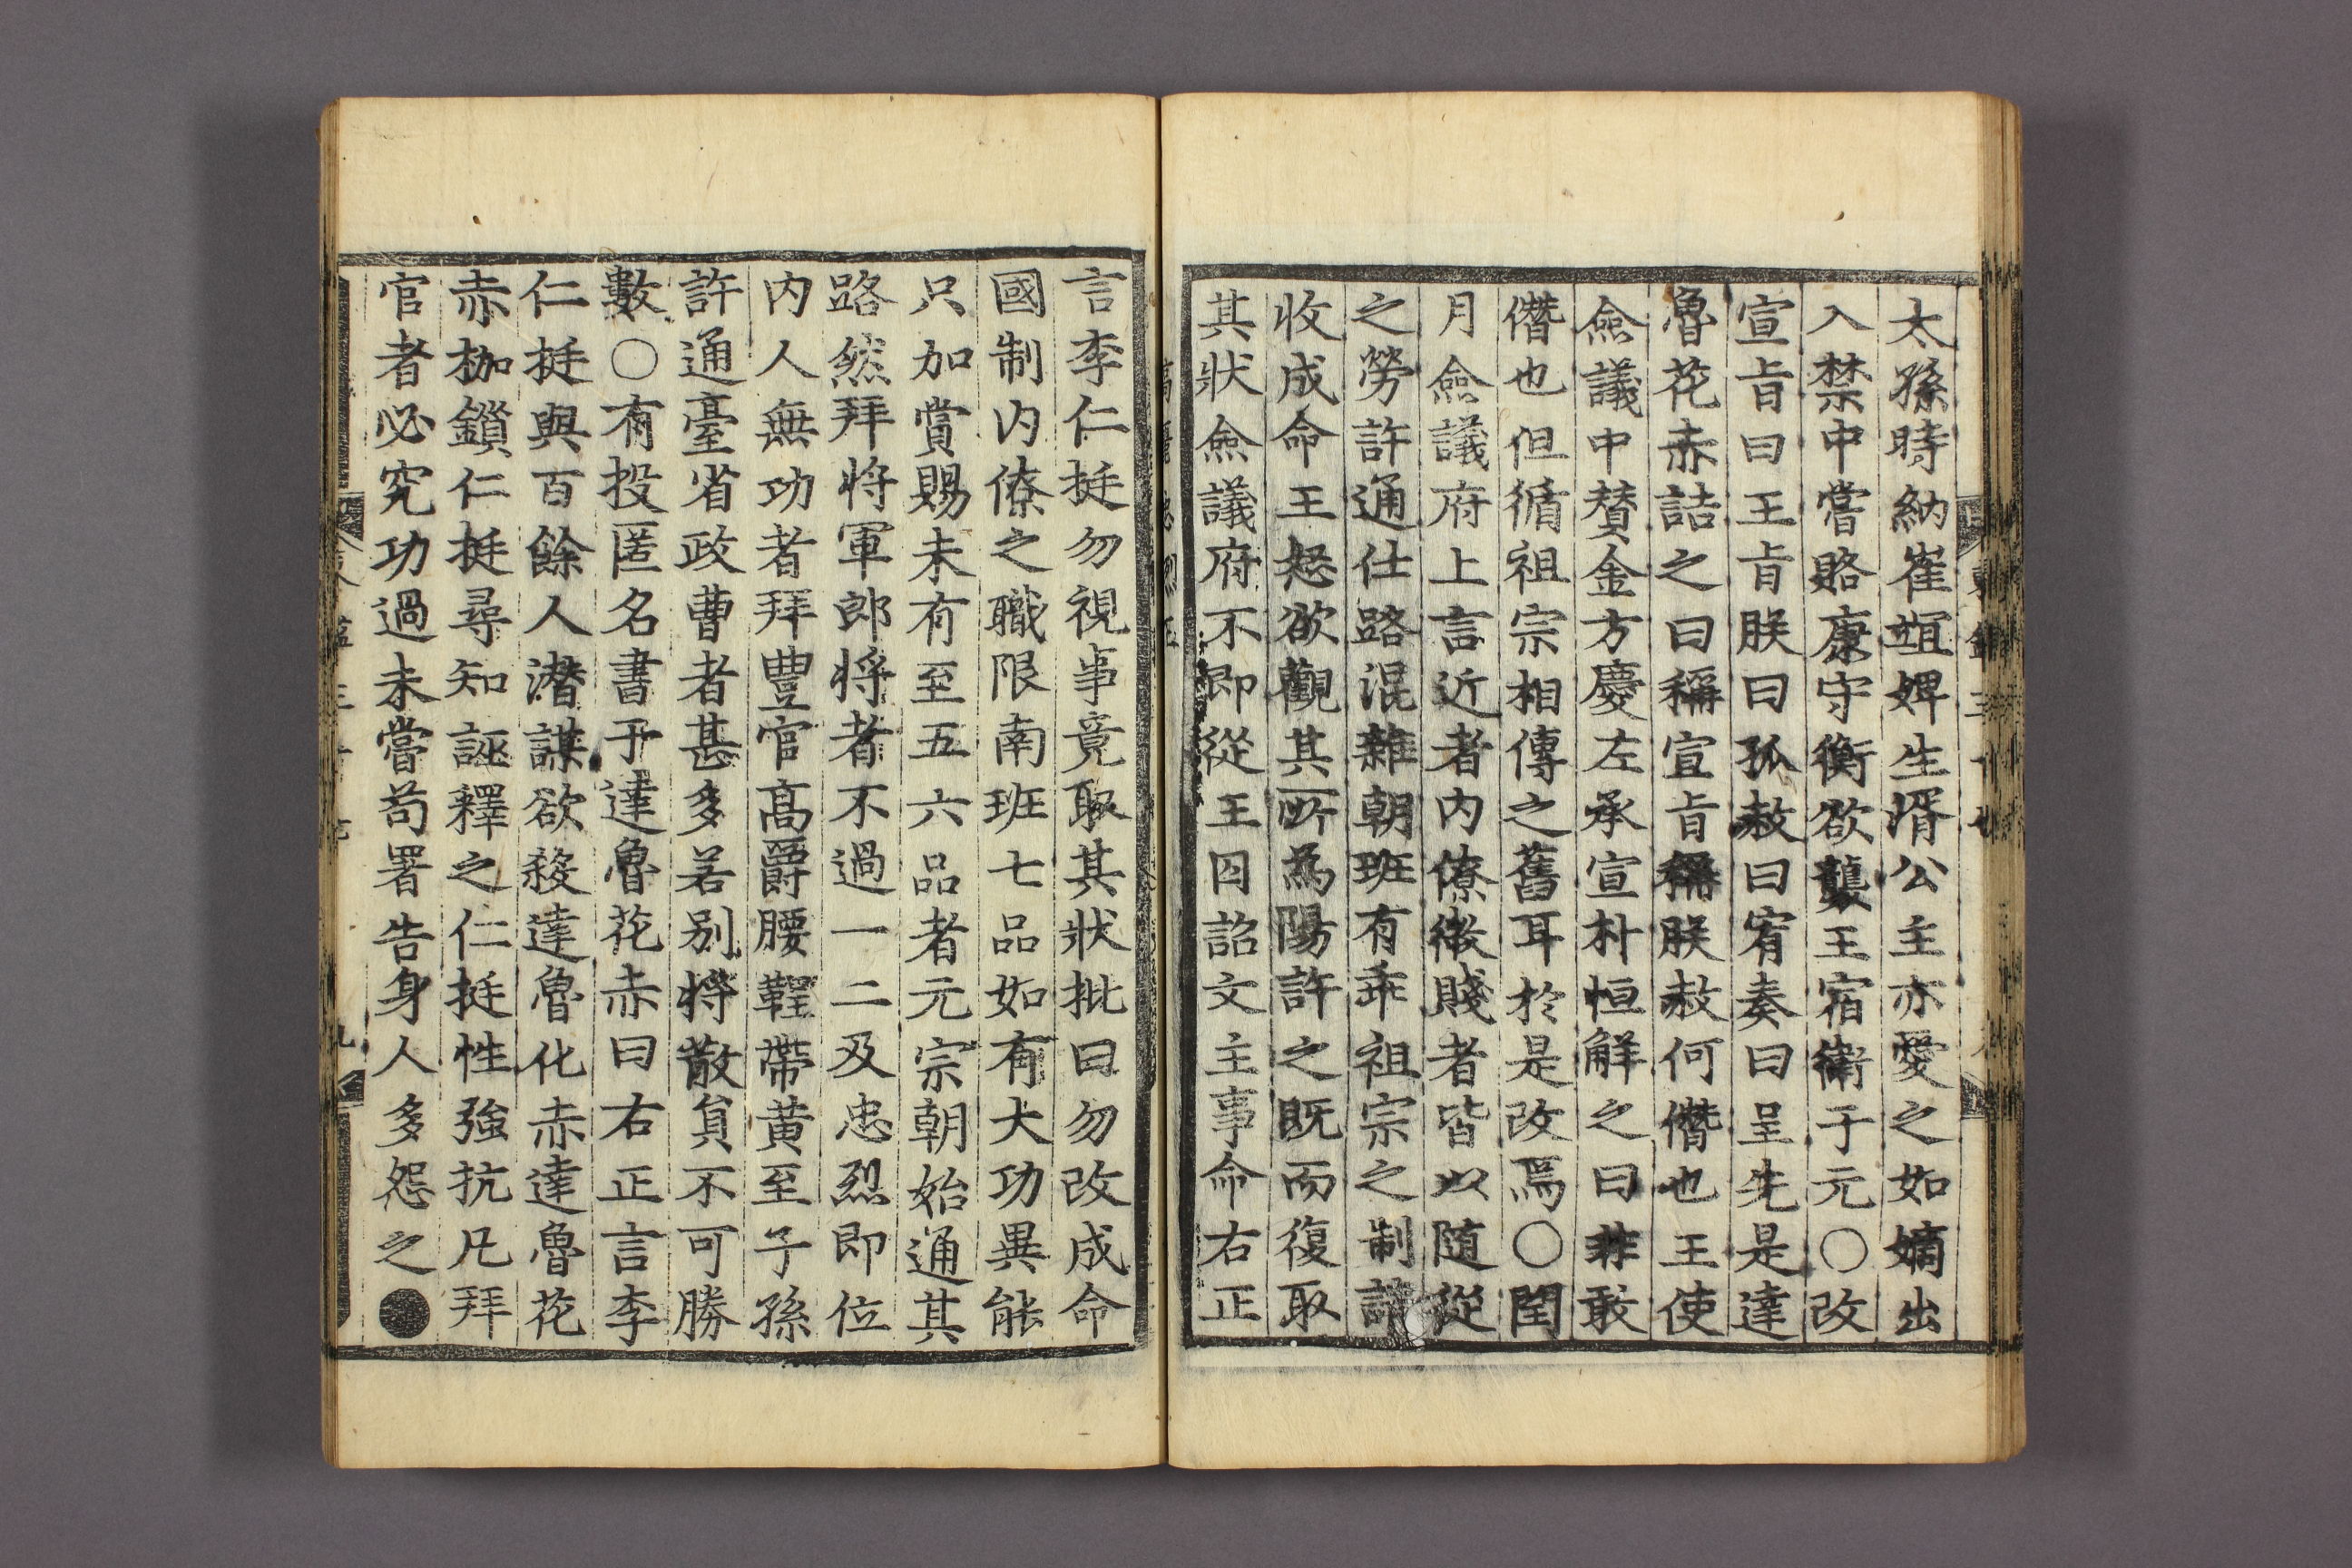 太孫時納崔竩婢生壻公主亦愛之如嫡出
入禁中嘗賂康守衡欲襲王宿衛于元○改
宣旨曰王旨朕曰孤赦曰宥奏曰呈先是達
魯花赤詰之曰稱宣旨稱朕赦何僭也王使
僉議中賛金方慶左承宣朴恒解之曰非敢
僭也但循祖宗相傳之舊耳於是改焉○閏
月僉議府上言近者内僚微賤者皆以随從
之勞許通仕路混雜朝班有乖祖宗之制請
收成命王怒欲觀其所為陽許之既而復取
其狀僉議府不即從王囚詔文主事命右正
言李仁挺勿視事竟取其狀批曰勿改成命
國制内僚之職限南班七品如有大功異能
只加賞賜未有至五六品者元宗朝始通其
路然拜将軍郎将者不過一二及忠烈即位
内人無功者拜豊官高爵腰鞓帶黄至子孫
許通臺省政曹者甚多若别将散負不可勝
數○有投匿名書于達魯花赤曰右正言李
仁挺與百餘人潜謀欲殺達魯化赤達魯花
赤枷鎖仁挺尋知誣釋之仁挺性強抗凡拜
官者必究功過未嘗苟署告身人多怨之